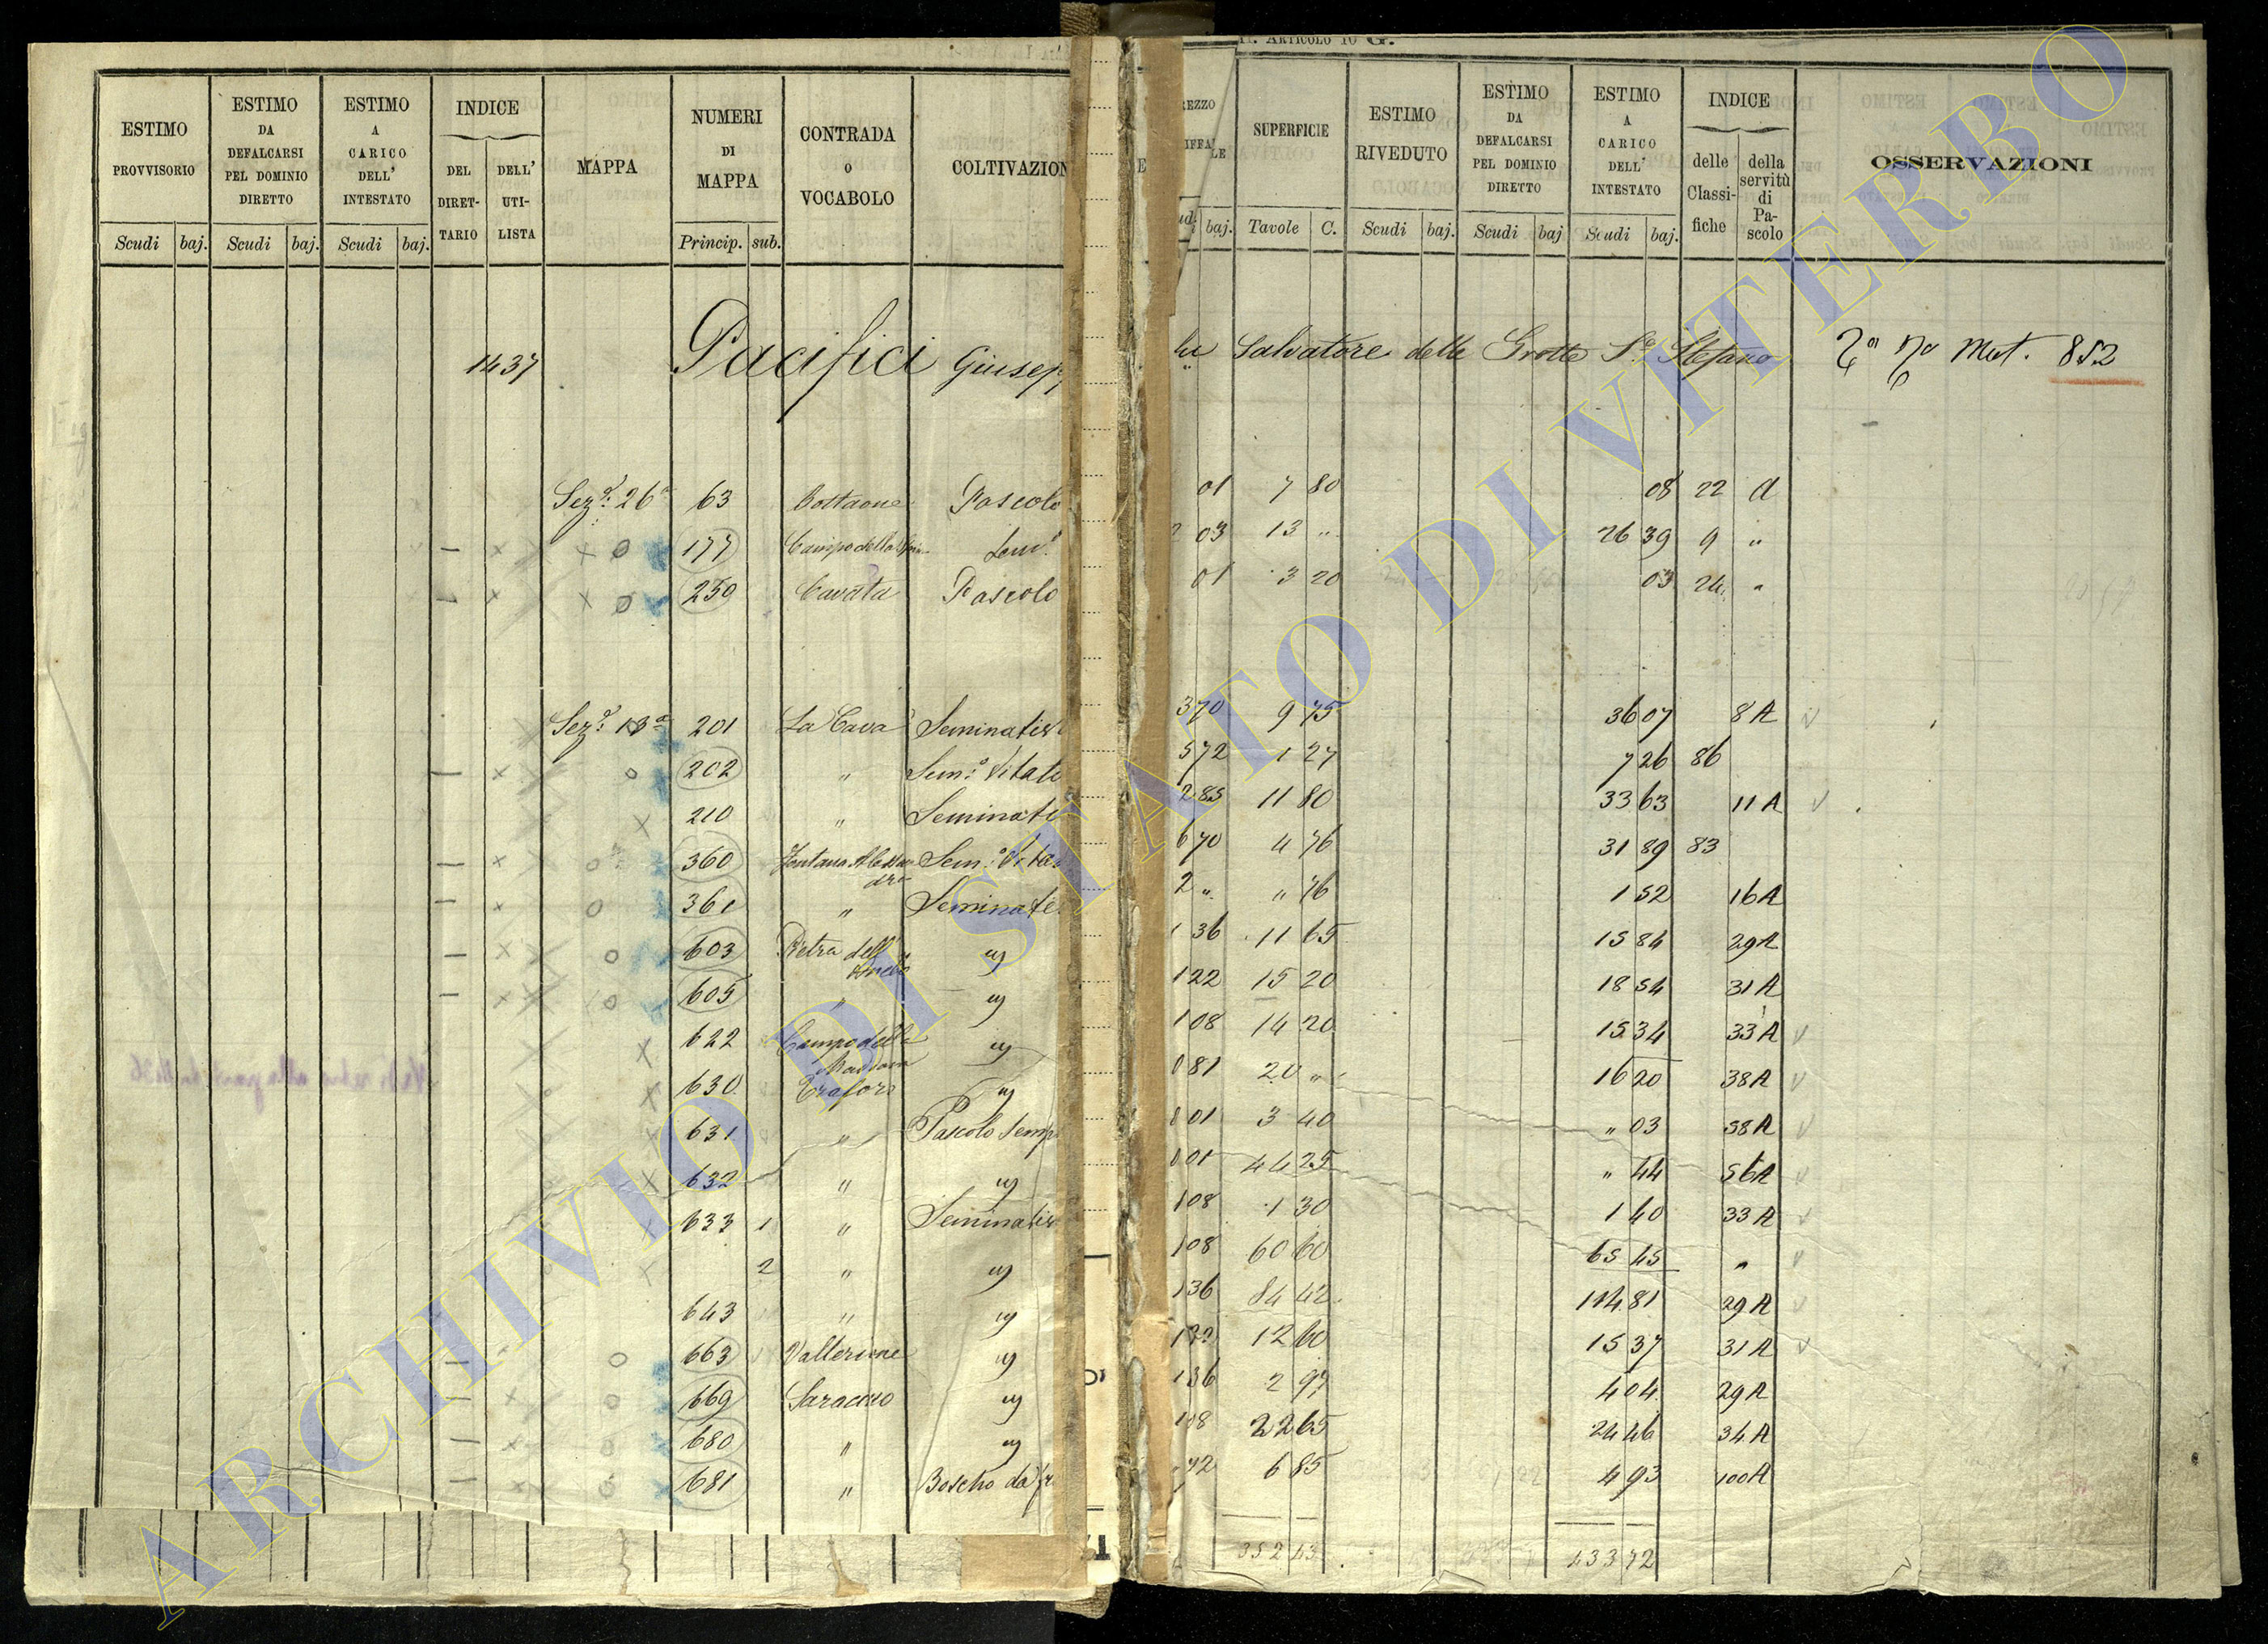 Tit. Articolo 10 G.
ESTIMO PROVVISORIO
Scudi baj.
ESTIMO DA DEFALCARSI PEL DOMINIO DIRETTO
Scudi baj.
ESTIMO A CARICO DELL' INTESTATO
Scudi baj.
INDICE
DEL DIRETTARIO
DELL' UTILISTA
MAPPA
NUMERI DI MAPPA
Princip. sub.
CONTRADA O VOCABOLO
COLTIVAZION
REZZO
baj.
SUPERFICIE
Tavole C.
ESTIMO RIVEDUTO
Scudi baj.
ESTIMO DA DEFALCARSI PEL DOMINIO DIRETTO
Scudi baj
ESTIMO A CARICO DELL' INTESTATO
Scudi baj.
INDICE
delle Classifiche
della servitù di Pascolo
OSSERVAZIONI
1437 Pacifici Giusep Salvatore delle Grotte S.o Stefano Mut. 852
Sez.e 26a 63 Pascolo 01 7 80 08 22 A
177 Campo della 03 13 " 26 39 9 "
250 Cavata Pascolo 01 3 20 03 24 "
Sez.e 13a 201 La Cava Seminativ 370 9 75 36 07 8 A
202 " Sem.o Vitat 572 1 27 7 26 86
210 " Seminati 285 11 80 33 63 11 A
360 Fontana Alessandra Sem.o Vita 670 4 76 31 89 83
361 " Seminati 2 " " 76 1 52 16 A
603 Pietra dell' 136 11 65 15 84 29 A
605 " 122 15 20 18 54 31 A
622 Campo della 108 14 20 15 34 33 A
630 Traforo 081 20 " 16 20 38 A
631 " Pascolo Semp 01 3 40 " 03 58 A
632 " 001 44 25 " 44 56 A
633 1 " Seminativ 108 1 30 1 40 33 A
2 " 108 60 60 65 45 "
643 " 136 84 42 114 81 29 A
663 Vallerione 122 12 60 15 37 31 A
669 Saraceno 136 2 97 4 04 29 A
680 " 108 22 65 24 46 34 A
681 " Boscho da 72 6 85 4 93 100 A
352 43 433 72
ARCHIVIO DI STATO DI VITERBO